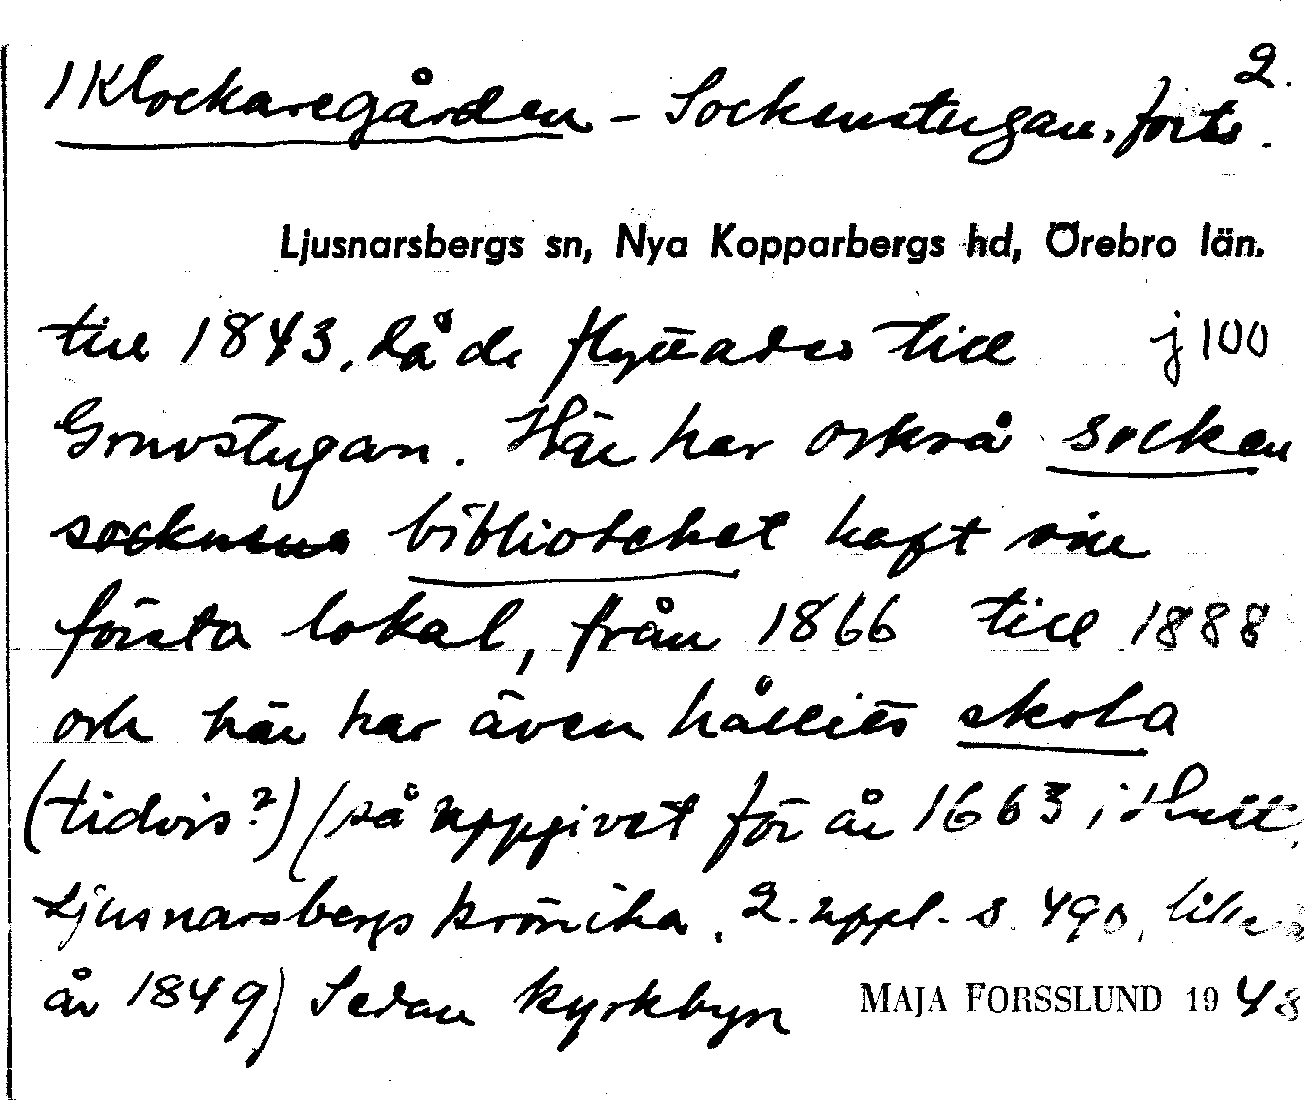 2.
1 Klockaregården – Sockenstugan, forts.
Ljusnarsbergs sn, Nya Kopparbergs hd, Örebro län.
till 1843, då de flyttades till j 100
Gruvstugan. Här har också socken
biblioteket haft sin
första lokal, från 1866 till 1888
och här har även hållits skola
(tidvis?) (så uppgivet för år 1663 i Hult,
Ljusnarsbergs krönika, 2. uppl. s. 490,
år 1849) Sedan kyrkbyn MAJA FORSSLUND 1948